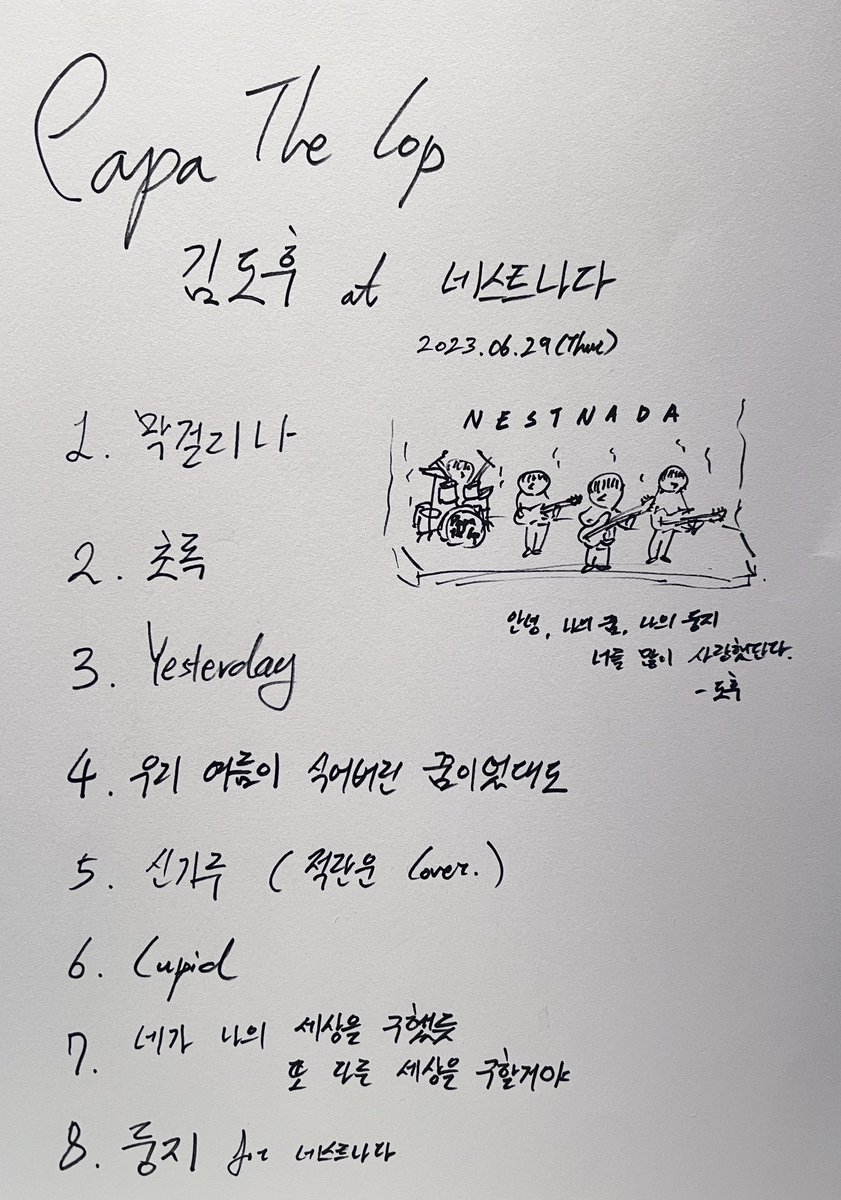 Papa The Cop
김도후 at 네스트나다
2023.06.29(Thur)
1. 막걸리나
NESTNADA
2. 초록
안녕, 나의 꿈, 나의 둥지
너를 많이 사랑했단다.
- 도후
3. Yesterday
4. 우리 여름이 식어버린 꿈이었대도
5. 신기루 (적란운 Cover.)
6. Cupid
7. 네가 나의 세상을 구했듯
또 다른 세상을 구할거야
8. 둥지 for 네스트나다